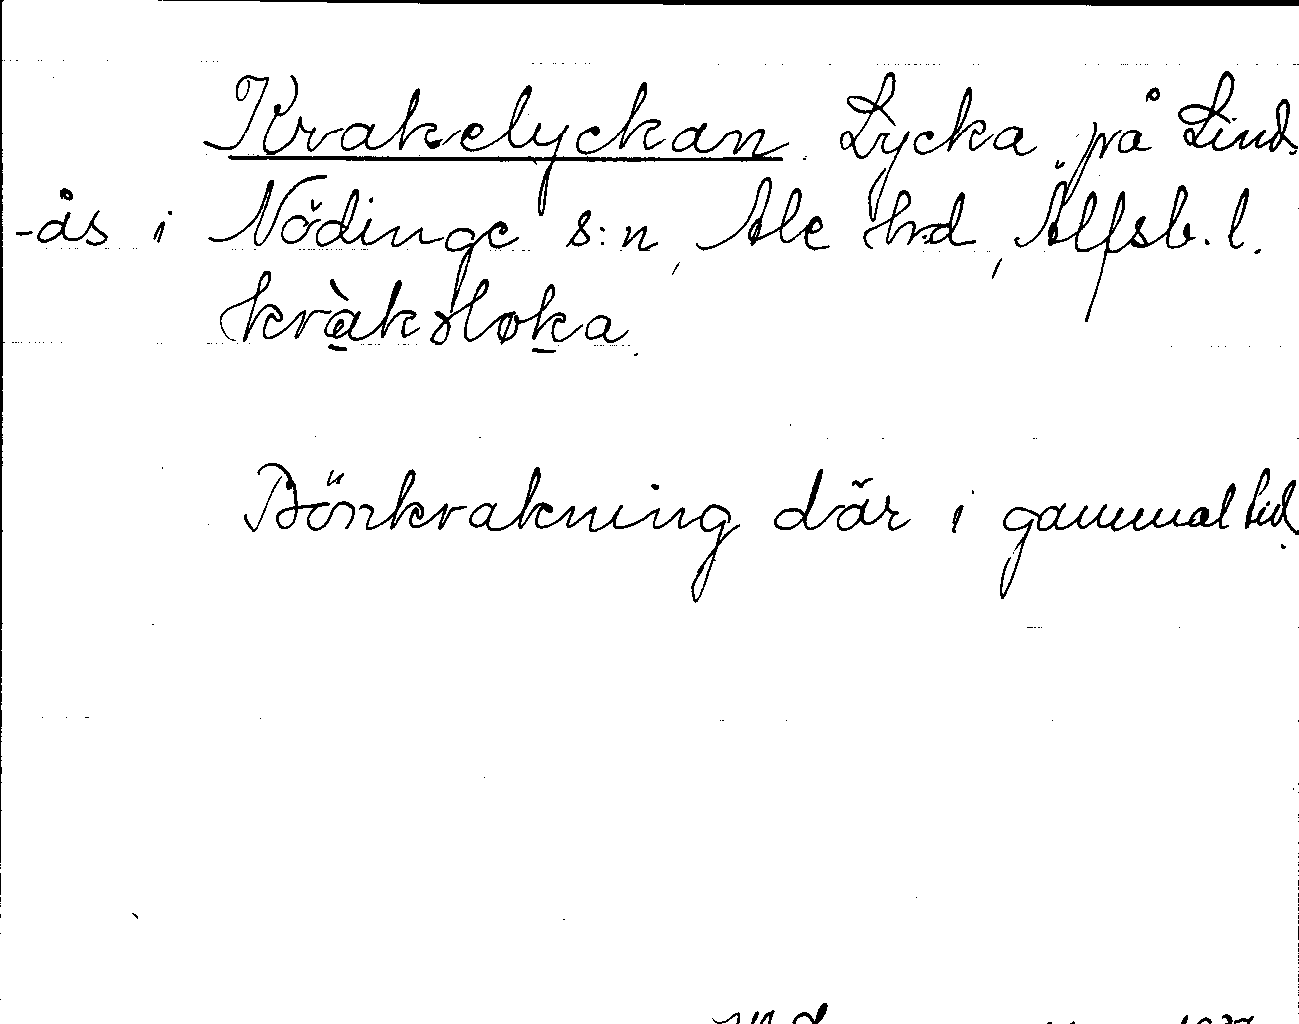 Krakelyckan. Lycka på Lind-
-ås i Nödinge s:n, Ale hrd, Älfsb. l.
kràkəløka.
Bönkrakning där i gammal tid.